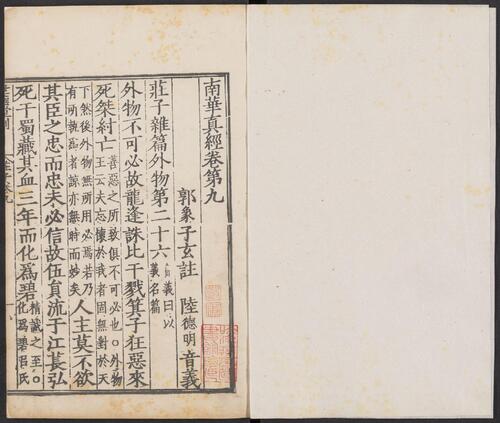 南華真經卷第九
郭象子玄註 陸德明音義
莊子雜篇外物第二十六 音義曰以義名篇
外物不可必故龍逢誅比干戮箕子狂惡來
死桀紂亡 善惡之所致俱不可必也○外物王云夫忘懷於我者固無對於天
下然後外物無所用必焉若乃有所執爲者諒亦無時而妙矣 人主莫不欲
其臣之忠而忠未必信故伍員流于江萇弘
死于蜀藏其血三年而化爲碧 精誠之至○化爲碧呂氏